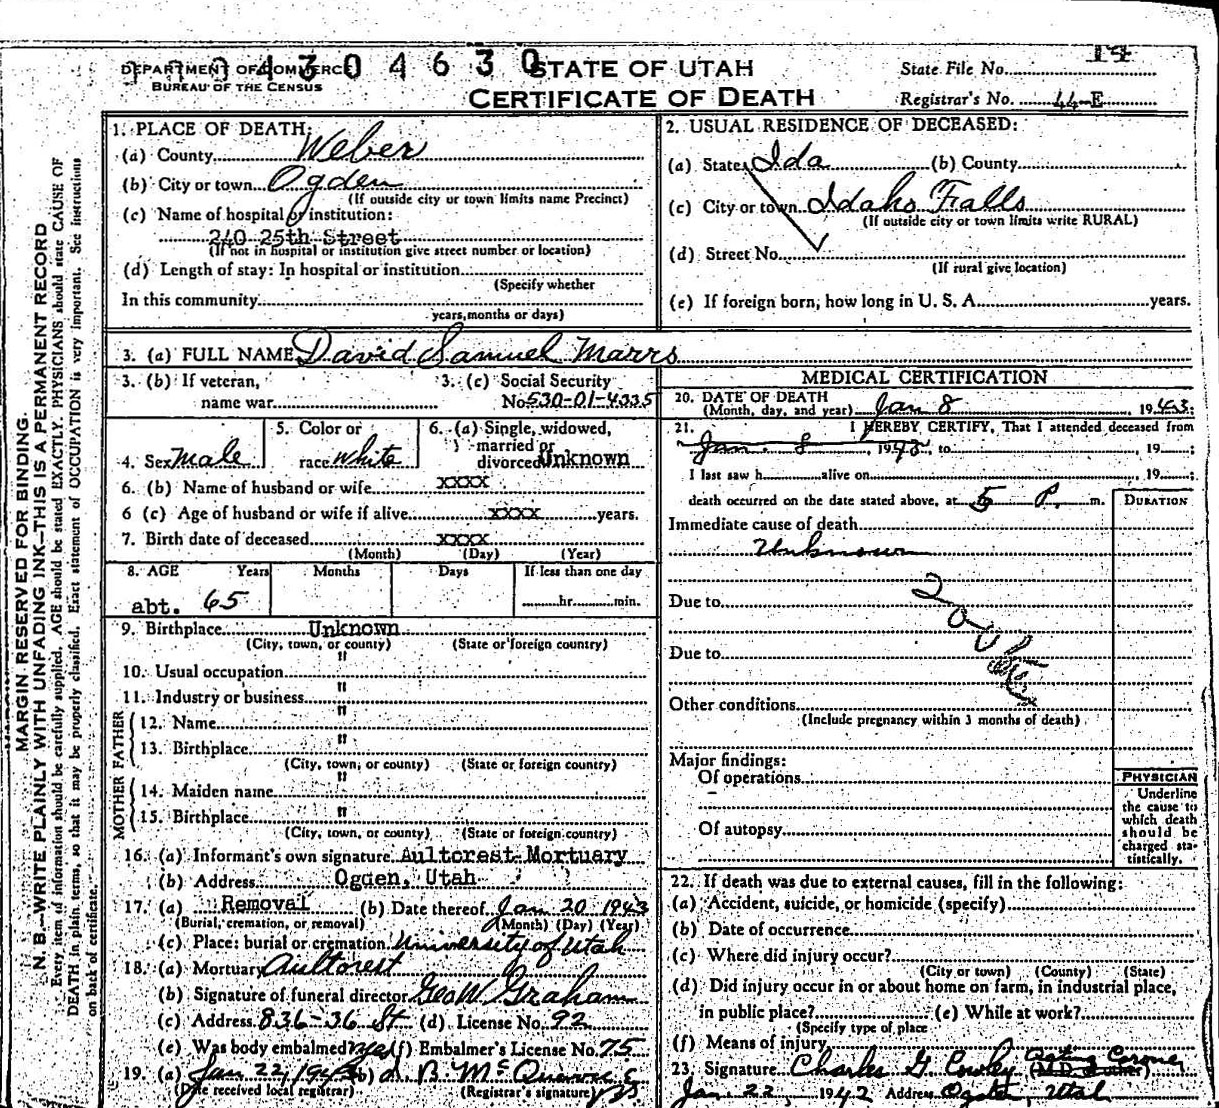 DEPARTMENT OF COMMERCE
BUREAU OF THE CENSUS
4 3 0 4 6 3 0
STATE OF UTAH
CERTIFICATE OF DEATH
14
State File No.
Registrar's No. 44-E
MARGIN RESERVED FOR BINDING.
N. B.—WRITE PLAINLY WITH UNFADING INK—THIS IS A PERMANENT RECORD
Every item of information should be carefully supplied. AGE should be stated EXACTLY. PHYSICIANS should state CAUSE OF
DEATH in plain terms, so that it may be properly classified. Exact statement of OCCUPATION is very important. See instructions
on back of certificate.
1. PLACE OF DEATH:
(a) County Weber
(b) City or town Ogden
(If outside city or town limits name Precinct)
(c) Name of hospital or institution:
240 25th Street
(If not in hospital or institution give street number or location)
(d) Length of stay: In hospital or institution
(Specify whether
In this community
years, months or days)
2. USUAL RESIDENCE OF DECEASED:
(a) State Ida (b) County
(c) City or town Idaho Falls
(If outside city or town limits write RURAL)
(d) Street No.
(If rural give location)
(e) If foreign born, how long in U. S. A. years.
3. (a) FULL NAME David Samuel Marrs
3. (b) If veteran,
name war
3. (c) Social Security
No. 530-01-4335
4. Sex Male
5. Color or
race White
6. (a) Single, widowed,
married or
divorced Unknown
6. (b) Name of husband or wife xxxx
6 (c) Age of husband or wife if alive xxxx years.
7. Birth date of deceased xxxx
(Month) (Day) (Year)
8. AGE Years Months Days If less than one day
abt. 65 hr. min.
9. Birthplace Unknown
(City, town, or county) (State or foreign country)
10. Usual occupation "
11. Industry or business "
FATHER
12. Name "
13. Birthplace "
(City, town, or county) (State or foreign country)
MOTHER
14. Maiden name "
15. Birthplace "
(City, town, or county) (State or foreign country)
16. (a) Informant's own signature Aultorest Mortuary
(b) Address Ogden, Utah
17. (a) Removal (b) Date thereof Jan 20 1943
(Burial, cremation, or removal) (Month) (Day) (Year)
(c) Place: burial or cremation University of Utah
18. (a) Mortuary Aultorest
(b) Signature of funeral director Geo W. Graham
(c) Address 836-36 St (d) License No. 92
(e) Was body embalmed yes (f) Embalmer's License No. 75
19. (a) Jan 22, 1943 (b)
(Date received local registrar) (Registrar's signature)
MEDICAL CERTIFICATION
20. DATE OF DEATH
(Month, day, and year) Jan 8, 1943;
21. I HEREBY CERTIFY, That I attended deceased from
Jan. 8, 1943, to , 19 ;
I last saw h alive on , 19 ;
death occurred on the date stated above, at 5 P. m.
DURATION
Immediate cause of death
Unknown
Due to
Due to
Other conditions
(Include pregnancy within 3 months of death)
Major findings:
Of operations
Of autopsy
PHYSICIAN
Underline
the cause to
which death
should be
charged sta-
tistically.
22. If death was due to external causes, fill in the following:
(a) Accident, suicide, or homicide (specify)
(b) Date of occurrence
(c) Where did injury occur?
(City or town) (County) (State)
(d) Did injury occur in or about home on farm, in industrial place,
in public place? (e) While at work?
(Specify type of place
(f) Means of injury
23. Signature Charles G. Cowley Acting Coroner
(M.D. or other)
Jan. 22, 1942 Address Ogden, Utah